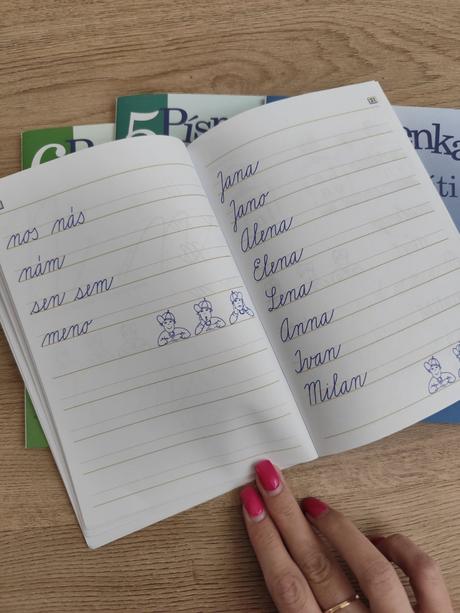 6
5 Písn
enka
íti
nos nás
nám
sen sem
meno
Jana
Jano
Alena
Elena
Lena
Anna
Ivan
Milan